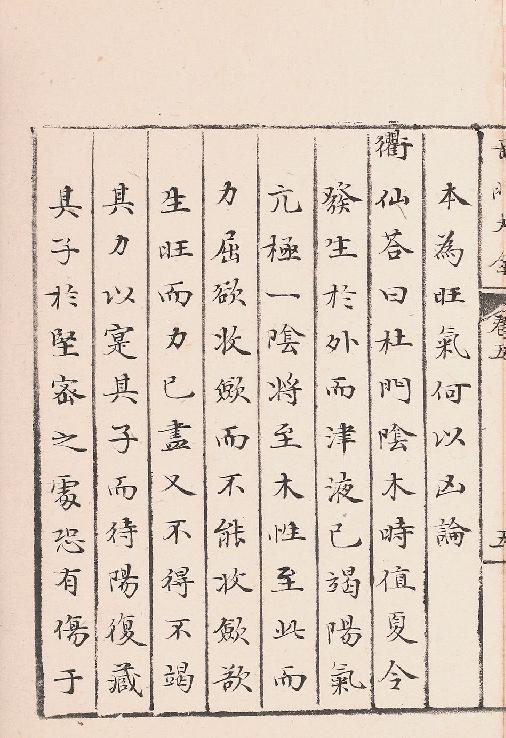 卷五
五
本為旺氣何以凶論
衢仙荅曰杜門陰木時值夏令
發生於外而津液已竭陽氣
亢極一陰將至木性至此而
力屈欲收歛而不能收歛欲
生旺而力已盡又不得不竭
其力以寔其子而待陽復藏
其子於堅密之處恐有傷于